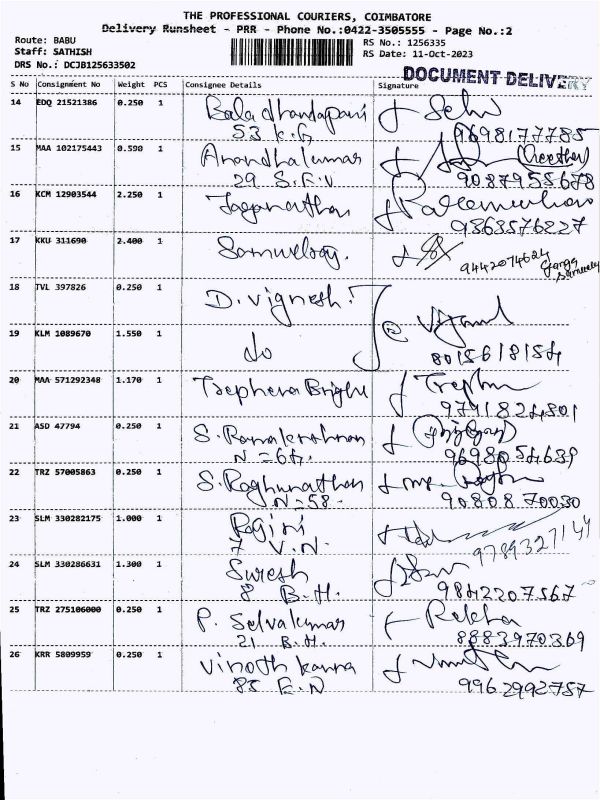 THE PROFESSIONAL COURIERS, COIMBATORE
Delivery Runsheet - PRR - Phone No.:0422-3505555 - Page No.:2
Route: BABU
Staff: SATHISH
DRS No.: DCJB125633502
RS No.: 1256335
RS Date: 11-Oct-2023
DOCUMENT DELIVERY
S No Consignment No Weight PCS Consignee Details Signature
14 EDQ 21521386 0.250 1 Baladhandapani
53 K.G 9698177785
15 MAA 102175443 0.590 1 Anandhakumar
29 S.F.V 9087955678
16 KCM 12903544 2.250 1 Jaganathan
9863576227
17 KKU 311690 2.400 1 Samuelraj.
9442074624
18 TVL 397826 0.250 1 D. Vignesh
19 KLM 1089670 1.550 1 do
8015618154
20 MAA 571292348 1.170 1
9791824801
21 ASD 47794 0.250 1 S. Ramakrishnan
N-64. 9698054639
22 TRZ 57005863 0.250 1 S. Raghunathan
N-58- 9080870030
23 SLM 330282175 1.000 1 Ragini
7 V.N. 9789327144
24 SLM 330286631 1.300 1 Suresh
8 B.H. 9842207567
25 TRZ 275106000 0.250 1 P. Selvakumar Rekha
21 B.H. 8883970369
26 KRR 5809959 0.250 1 Vinoth Kanna
85 E.N 9962992757